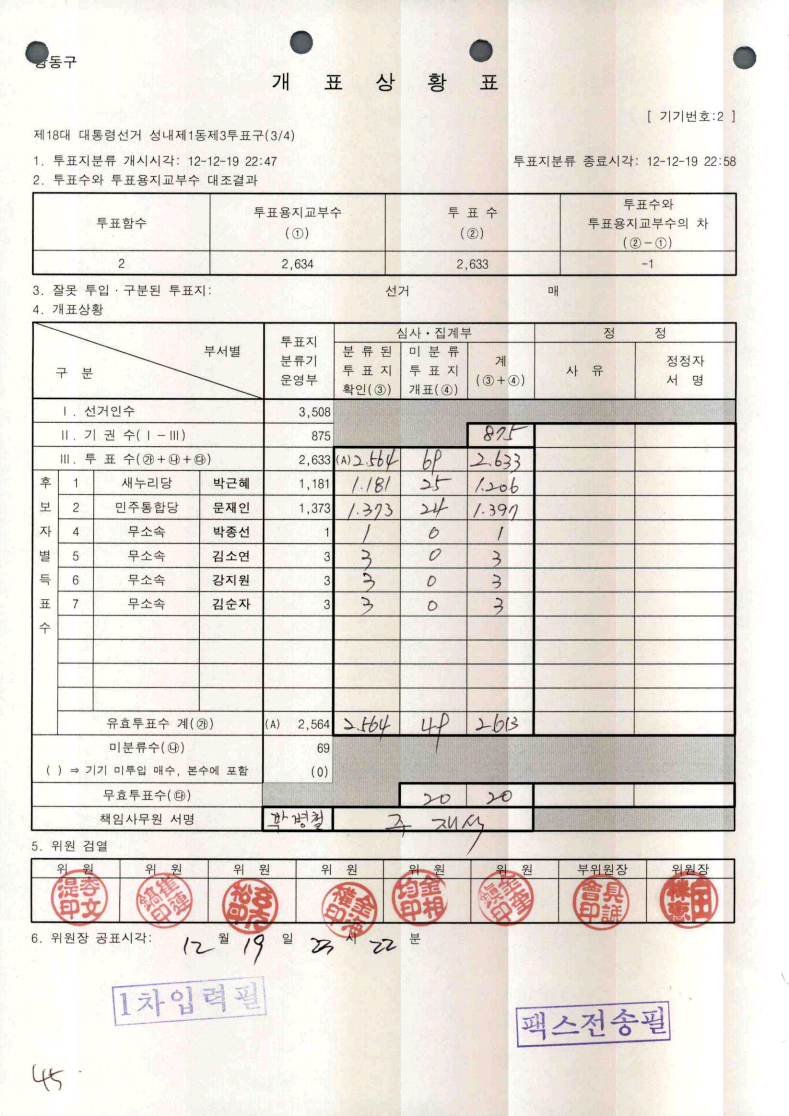 강동구
개 표 상 황 표
[ 기기번호:2 ]
제18대 대통령선거 성내제1동제3투표구(3/4)
1. 투표지분류 개시시각: 12-12-19 22:47 투표지분류 종료시각: 12-12-19 22:58
2. 투표수와 투표용지교부수 대조결과
투표함수 투표용지교부수 (①) 투 표 수 (②) 투표수와 투표용지교부수의 차 (②-①)
2 2,634 2,633 -1
3. 잘못 투입·구분된 투표지: 선거 매
4. 개표상황
구 분 부서별 투표지 분류기 운영부 심사·집계부 정 정
분 류 된 투 표 지 확인(③) 미 분 류 투 표 지 개표(④) 계 (③+④) 사 유 정정자 서 명
Ⅰ. 선거인수 3,508
Ⅱ. 기 권 수(Ⅰ-Ⅲ) 875 875
Ⅲ. 투 표 수(㉮+㉯+㉰) 2,633 (A) 2.564 69 2.633
후보자별득표수
1 새누리당 박근혜 1,181 1.181 25 1.206
2 민주통합당 문재인 1,373 1.373 24 1.397
4 무소속 박종선 1 1 0 1
5 무소속 김소연 3 3 0 3
6 무소속 강지원 3 3 0 3
7 무소속 김순자 3 3 0 3
유효투표수 계(㉮) (A) 2,564 2.564 49 2.613
미분류수(㉯) 69
( ) ⇒ 기기 미투입 매수, 본수에 포함 (0)
무효투표수(㉰) 20 20
책임사무원 서명 박경철 주재식
5. 위원 검열
위 원 위 원 위 원 위 원 위 원 위 원 부위원장 위원장
6. 위원장 공표시각: 12 월 19 일 23 시 22 분
1차입력필
팩스전송필
45